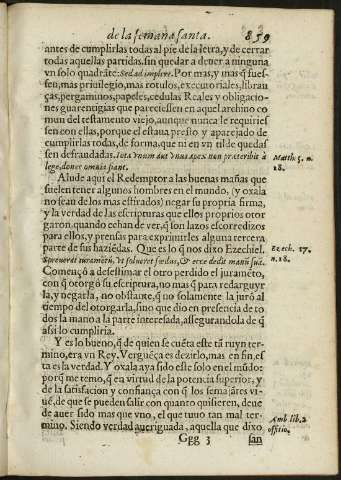 de la semana santa. 859
antes de cumplirlas todas al pie de la letra, y de cerrar
todas aquellas partidas, sin quedar a deuer a ninguna
vn solo quadrãte: Sed adimplere. Por mas, y mas q̃ fues-
sen, mas priuilegio, mas rotulos, executoriales, libran-
ças, pergaminos, papeles, cedulas Reales y obligacio-
nes guarentigias que pareciessen en aquel archiuo co
mun del testamento viejo, aunque nunca le requiries
sen con ellas, porque el estaua presto y aparejado de
cumplirlas todas, de forma, que ni en vn tilde quedas
sen defraudadas. Iota vnum aut vnus apex non præteribit à
lege, donec omnia fiant.
Matth. 5. n.
18.
Alude aqui el Redemptor a las buenas mañas que
suelen tener algunos hombres en el mundo, (y oxala
no sean de los mas estirados) negar su propria firma,
y la verdad de las escripturas que ellos proprios otor
garon, quando echan de ver, q̃ son lazos escorredizos
para ellos, y prensas para exprimirles alguna tercera
parte de sus haziẽdas. Que es lo q̃ nos dixo Ezechiel.
Spreuerat iuramẽtũ, vt solueret fœdus, & ecce dedit manũ suã.
Ezech. 17.
n. 18.
Començó a desestimar el otro perdido el juramẽto,
con q̃ otorgó su escriptura, no mas q̃ para redarguyr
la, y negarla, no obstãte, q̃ no solamente la juró al
tiempo del otorgarla, sino que dio en presencia de to
dos la mano a la parte interesada, assegurandola de q̃
assi lo cumpliria.
Y es lo bueno, q̃ de quien se cuẽta este tã ruyn ter-
mino, era vn Rey. Verguẽça es dezirlo, mas en fin, es
ta es la verdad. Y oxala aya sido este solo en el mũdo:
porq̃ me temo, q̃ en virtud de la potencia superior, y
de la satisfacion y confiança con q̃ los semejãtes vi-
uẽ, de que se pueden salir con quanto quisieren, deue
de auer sido mas que vno, el que tuuo tan mal ter-
mino. Siendo verdad aueriguada, aquella que dixo
Amb. lib. 2
offitio.
Ggg 3 san